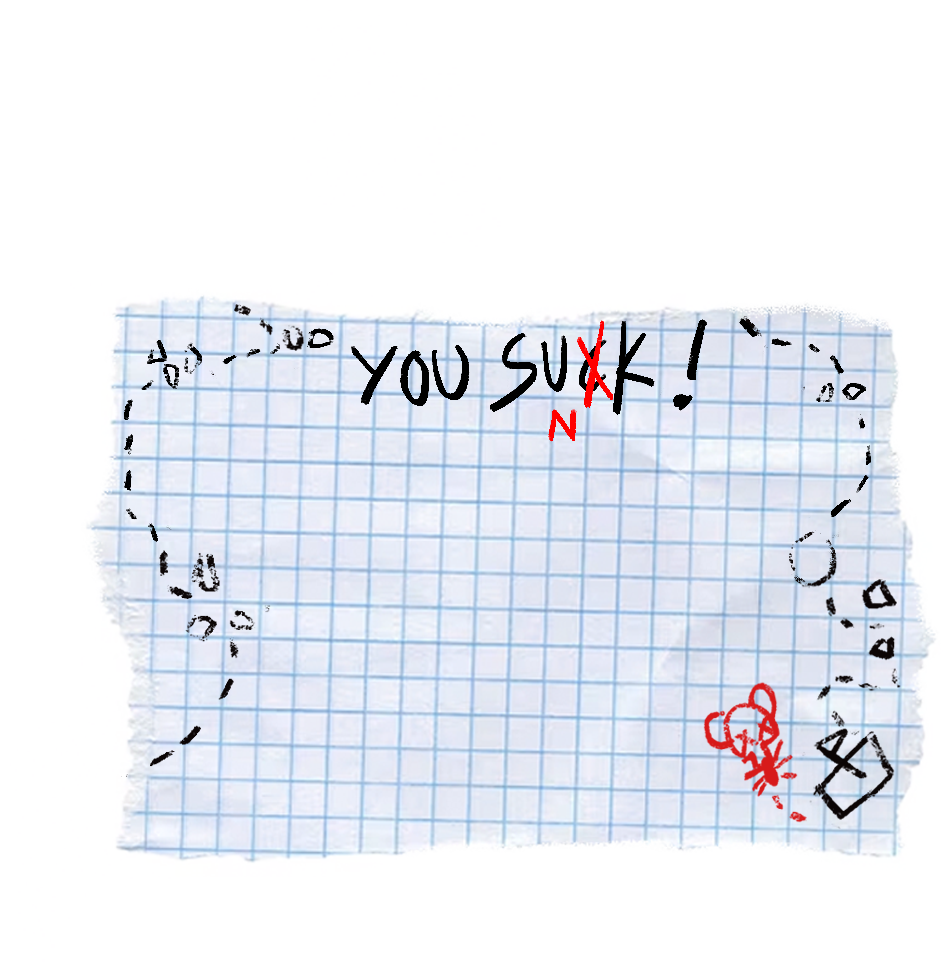 YOU SUCK!
N